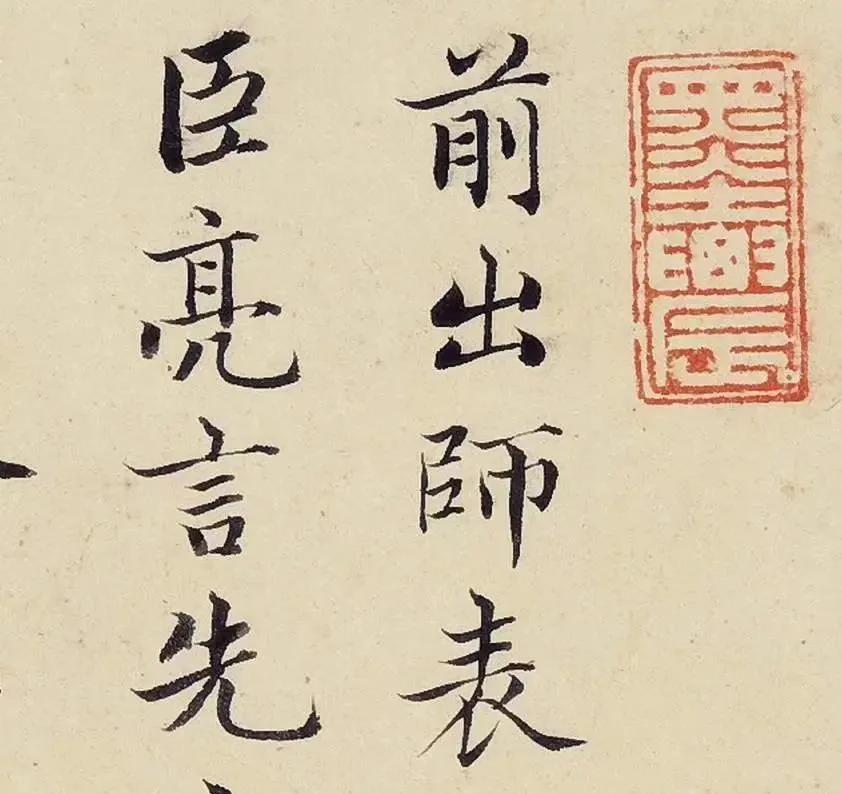 前出師表
臣亮言先